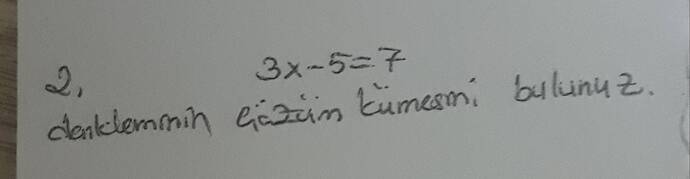 2,
3x-5=7
denkleminin çözüm kümesini bulunuz.